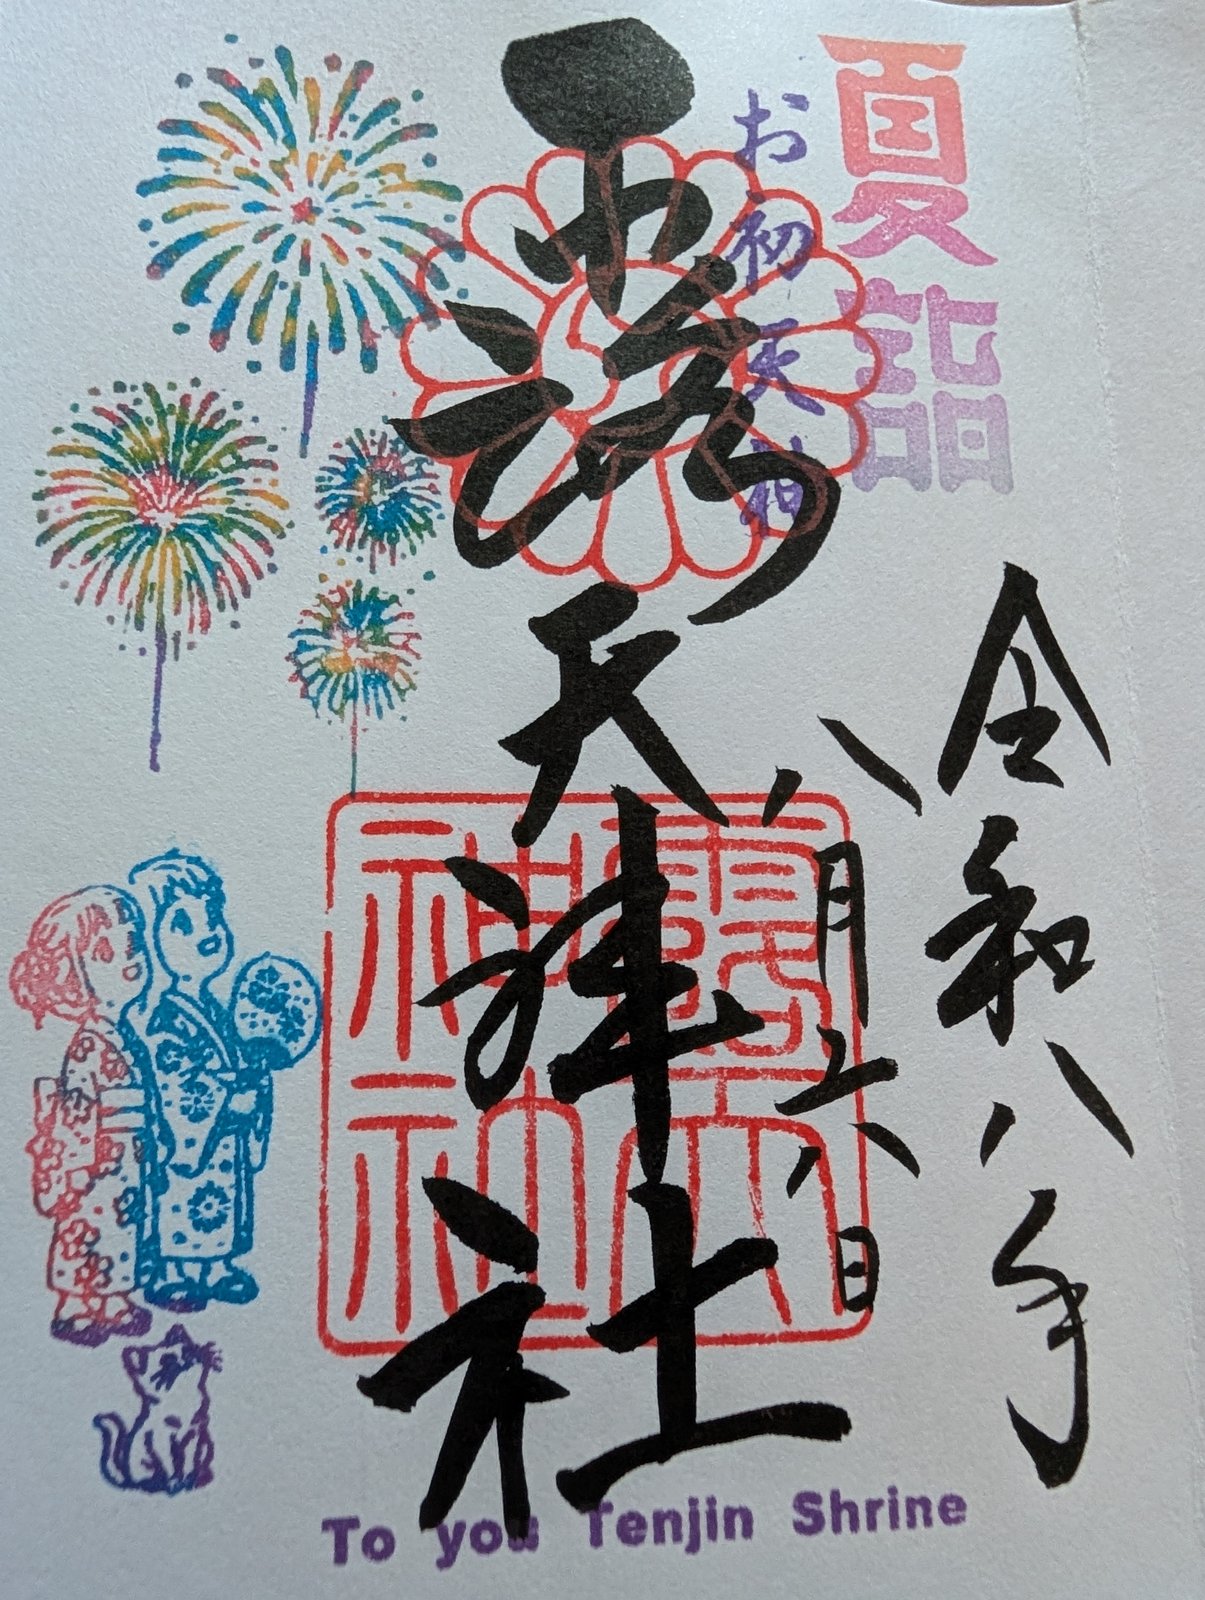 夏詣
令和八年
八月六日
お初天神
露天神社
露天
神社
To you Tenjin Shrine